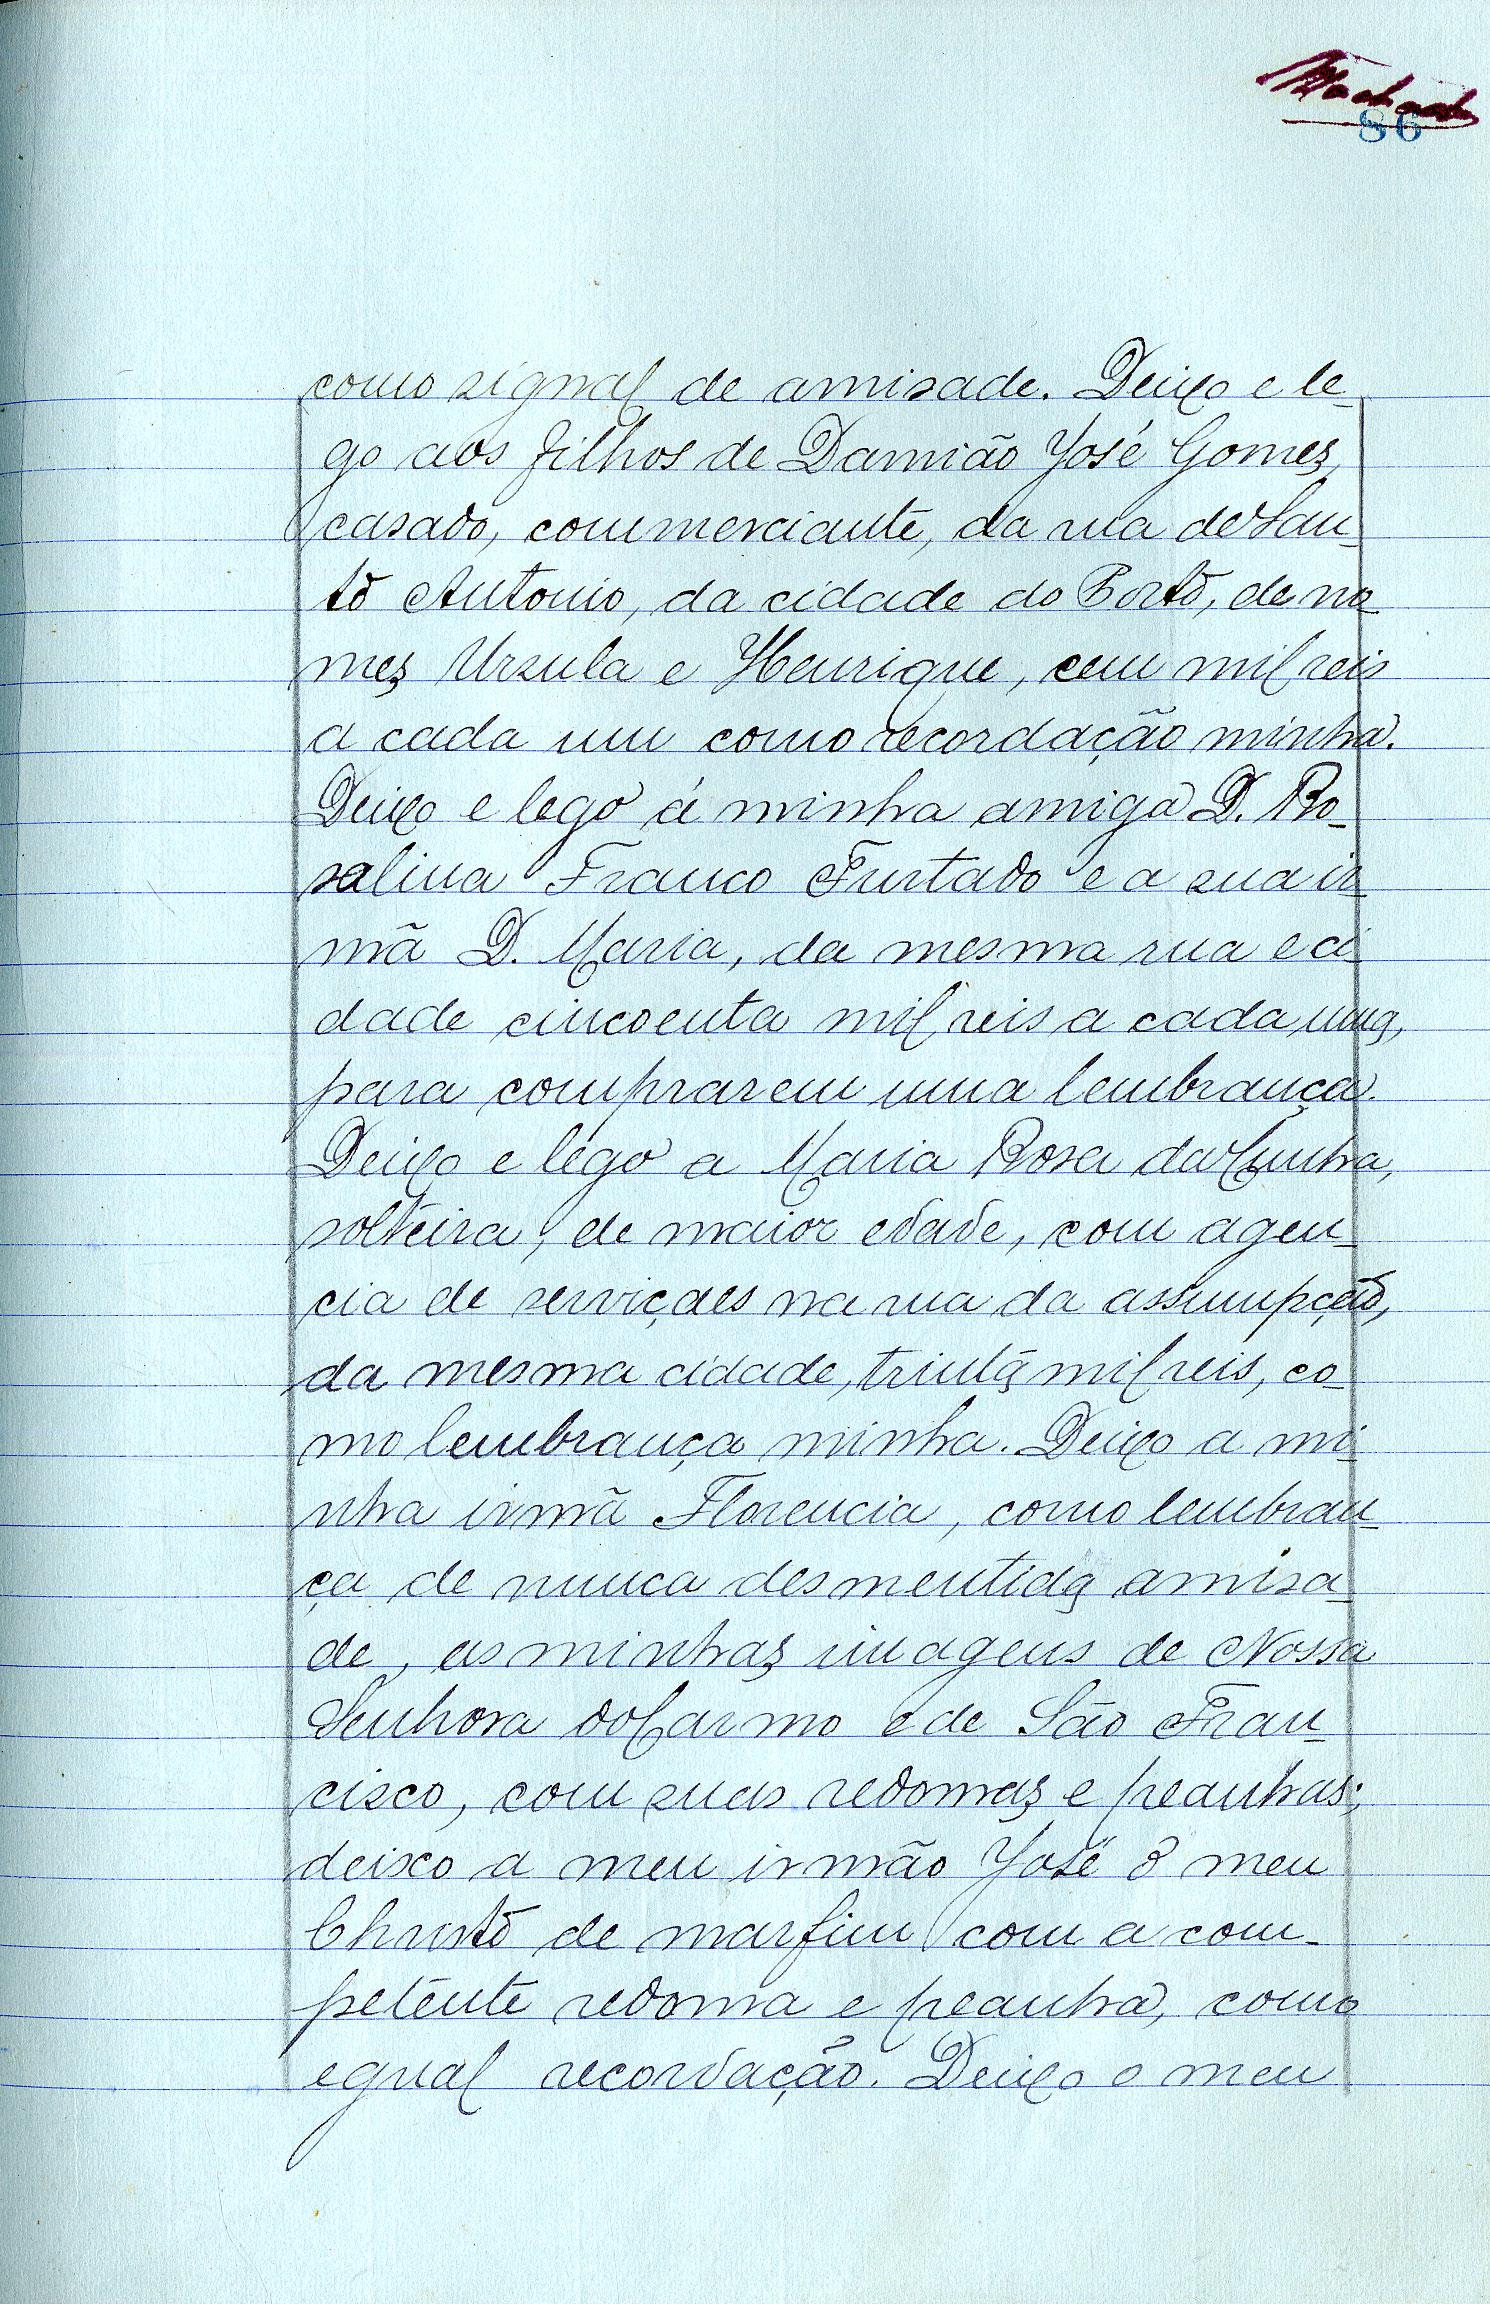 Machado
86
como signal de amisade. Deixo e le-
go aos filhos de Damião José Gomes,
casado, commerciante, da rua de San-
to Antonio, da cidade do Porto, de no-
mes Ursula e Henrique, cem mil reis
a cada um como recordação minha.
Deixo e lego á minha amiga D. Ro-
salina Franco Furtado e a sua ir-
mã D. Maria, da mesma rua e ci-
dade cincoenta mil reis a cada uma,
para comprarem uma lembrança.
Deixo e lego a Maria Rosa da Cunha,
solteira, de maior edade, com agen-
cia de serviçaes na rua da assumpção,
da mesma cidade, trinta mil reis, co-
mo lembrança minha. Deixo a mi-
nha irmã Florencia, como lembran-
ça de nunca desmentida amisa-
de, as minhas imagens de Nossa
Senhora do Carmo e de São Fran-
cisco, com suas redomas e peanhas;
deixo a meu irmão José o meu
Christo de marfim com a com-
petente redoma e peanha, como
egual recordação. Deixo o meu